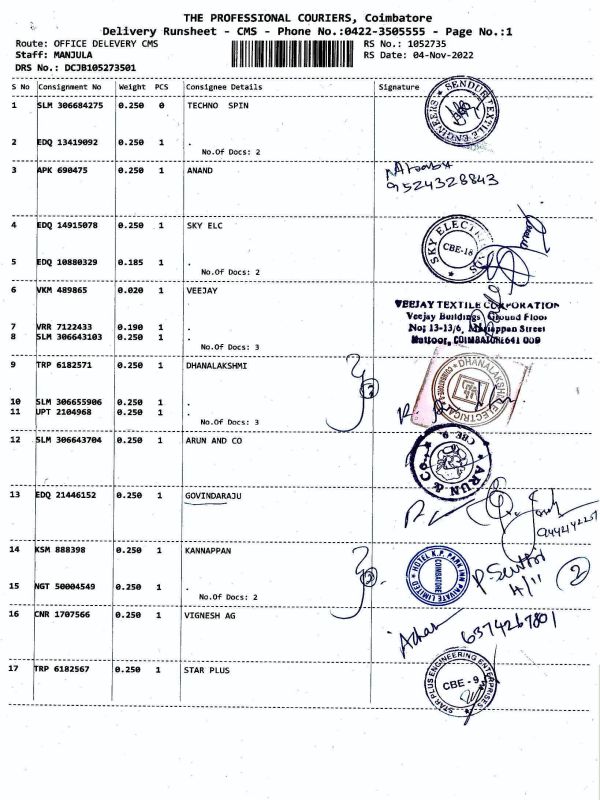 THE PROFESSIONAL COURIERS, Coimbatore
Delivery Runsheet - CMS - Phone No.:0422-3505555 - Page No.:1
Route: OFFICE DELEVERY CMS RS No.: 1052735
Staff: MANJULA RS Date: 04-Nov-2022
DRS No.: DCJB105273501
S No Consignment No Weight PCS Consignee Details Signature
1 SLM 306684275 0.250 0 TECHNO SPIN
SENDUR TEXTILE ENGINEERS
2 EDQ 13419092 0.250 1 .
No.Of Docs: 2
3 APK 690475 0.250 1 ANAND
9524328843
4 EDQ 14915078 0.250 1 SKY ELC
SKY ELECTRICALS CBE-18
5 EDQ 10880329 0.185 1 .
No.Of Docs: 2
6 VKM 489865 0.020 1 VEEJAY
VEEJAY TEXTILE CORPORATION
Veejay Buildings Ground Floor
7 VRR 7122433 0.190 1 . No: 13-13/6, Street
8 SLM 306643103 0.250 1 . COIMBATORE 641 009
No.Of Docs: 3
9 TRP 6182571 0.250 1 DHANALAKSHMI
DHANALAKSHMI ELECTRICAL
10 SLM 306655906 0.250 1 .
11 UPT 2104968 0.250 1 .
No.Of Docs: 3
12 SLM 306643704 0.250 1 ARUN AND CO
ARUN & CO CBE-9
13 EDQ 21446152 0.250 1 GOVINDARAJU
14 KSM 888398 0.250 1 KANNAPPAN
HOTEL K.P. PARK INN PRIVATE LIMITED COIMBATORE
4/11 2
15 NGT 50004549 0.250 1 .
No.Of Docs: 2
16 CNR 1707566 0.250 1 VIGNESH AG
6374267801
17 TRP 6182567 0.250 1 STAR PLUS
STAR PLUS ENGINEERING ENTERPRISES CBE - 9